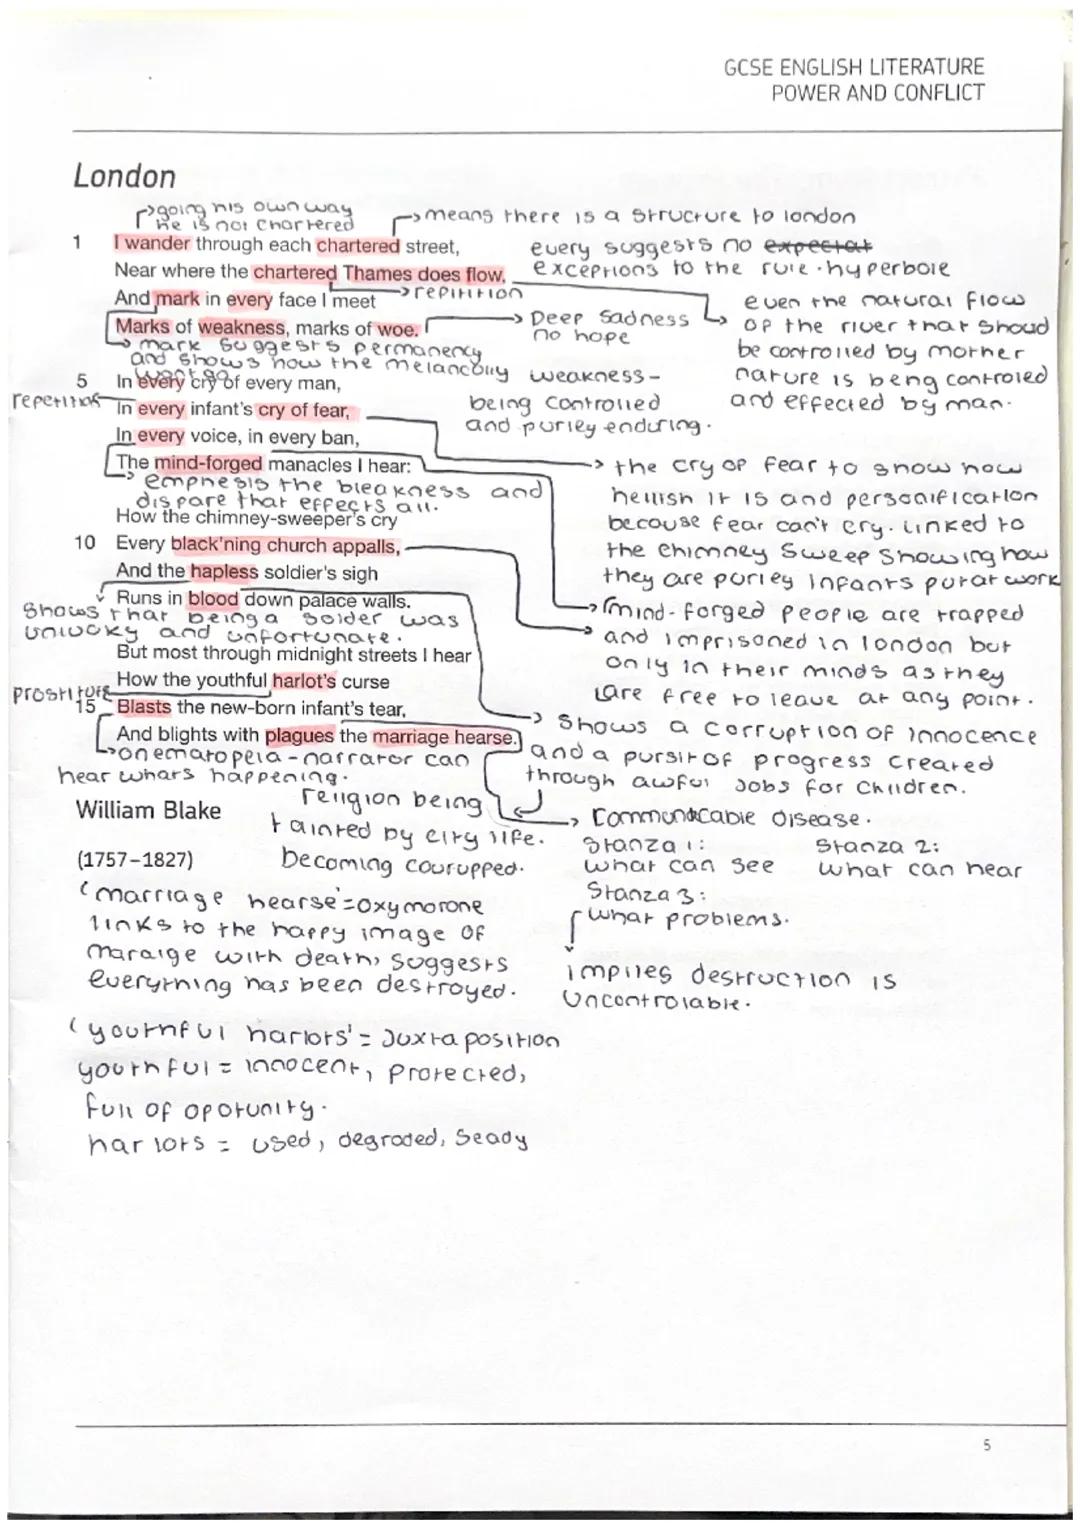 GCSE ENGLISH LITERATURE
POWER AND CONFLICT
London
going his own way
he is not chartered
means there is a structure to london
1 I wander through each chartered street,
every suggests no expectat
Near where the chartered Thames does flow,
exceptions to the rule. hyperbole
And mark in every face I meet
repitition
Marks of weakness, marks of woe.
Deep sadness
no hope
even the natural flow
op the river that shoud
be controlled by morher
nature is beng controled
and effected by man.
mark suggests permanency
and shows how the melancolly
wont go
weakness-
being controlled
and purley enduring.
5 In every cry of every man,
repetition
In every infant's cry of fear,
In every voice, in every ban,
The mind-forged manacles I hear:
emphesis the bleakness and
dispare that effects all.
the cry op fear to show how
hellish it is and personification
becouse fear can't cry. linked to
the chimney sweep showing how
they are purley infants put at work
How the chimney-sweeper's cry
10 Every black'ning church appalls,
And the hapless soldier's sigh
Runs in blood down palace walls.
shows that being a solder was
unlucky and unfortunate.
mind-forged people are trapped
and imprisoned in london but
only in their minds as they
are free to leave at any point.
But most through midnight streets I hear
How the youthful harlot's curse
prostitute
15 Blasts the new-born infant's tear,
And blights with plagues the marriage hearse.
onematopeia - narrator can
hear whats happening.
shows a corruption of innocence
and a pursit of progress created
through awful jobs for children.
William Blake
(1757–1827)
religion being
tainted by city life.
becoming courupped.
communacable disease.
Stanza 1:
what can see
Stanza 2:
what can hear
Stanza 3:
what problems.
implies destruction is
uncontrolable.
'marriage hearse'=oxymorone
links to the happy image of
maraige with death, suggests
everything has been destroyed.
'youthful harlots' = Juxtaposition
youthful = innocent, protected,
full of oportunity.
harlots = used, degraded, seady
5